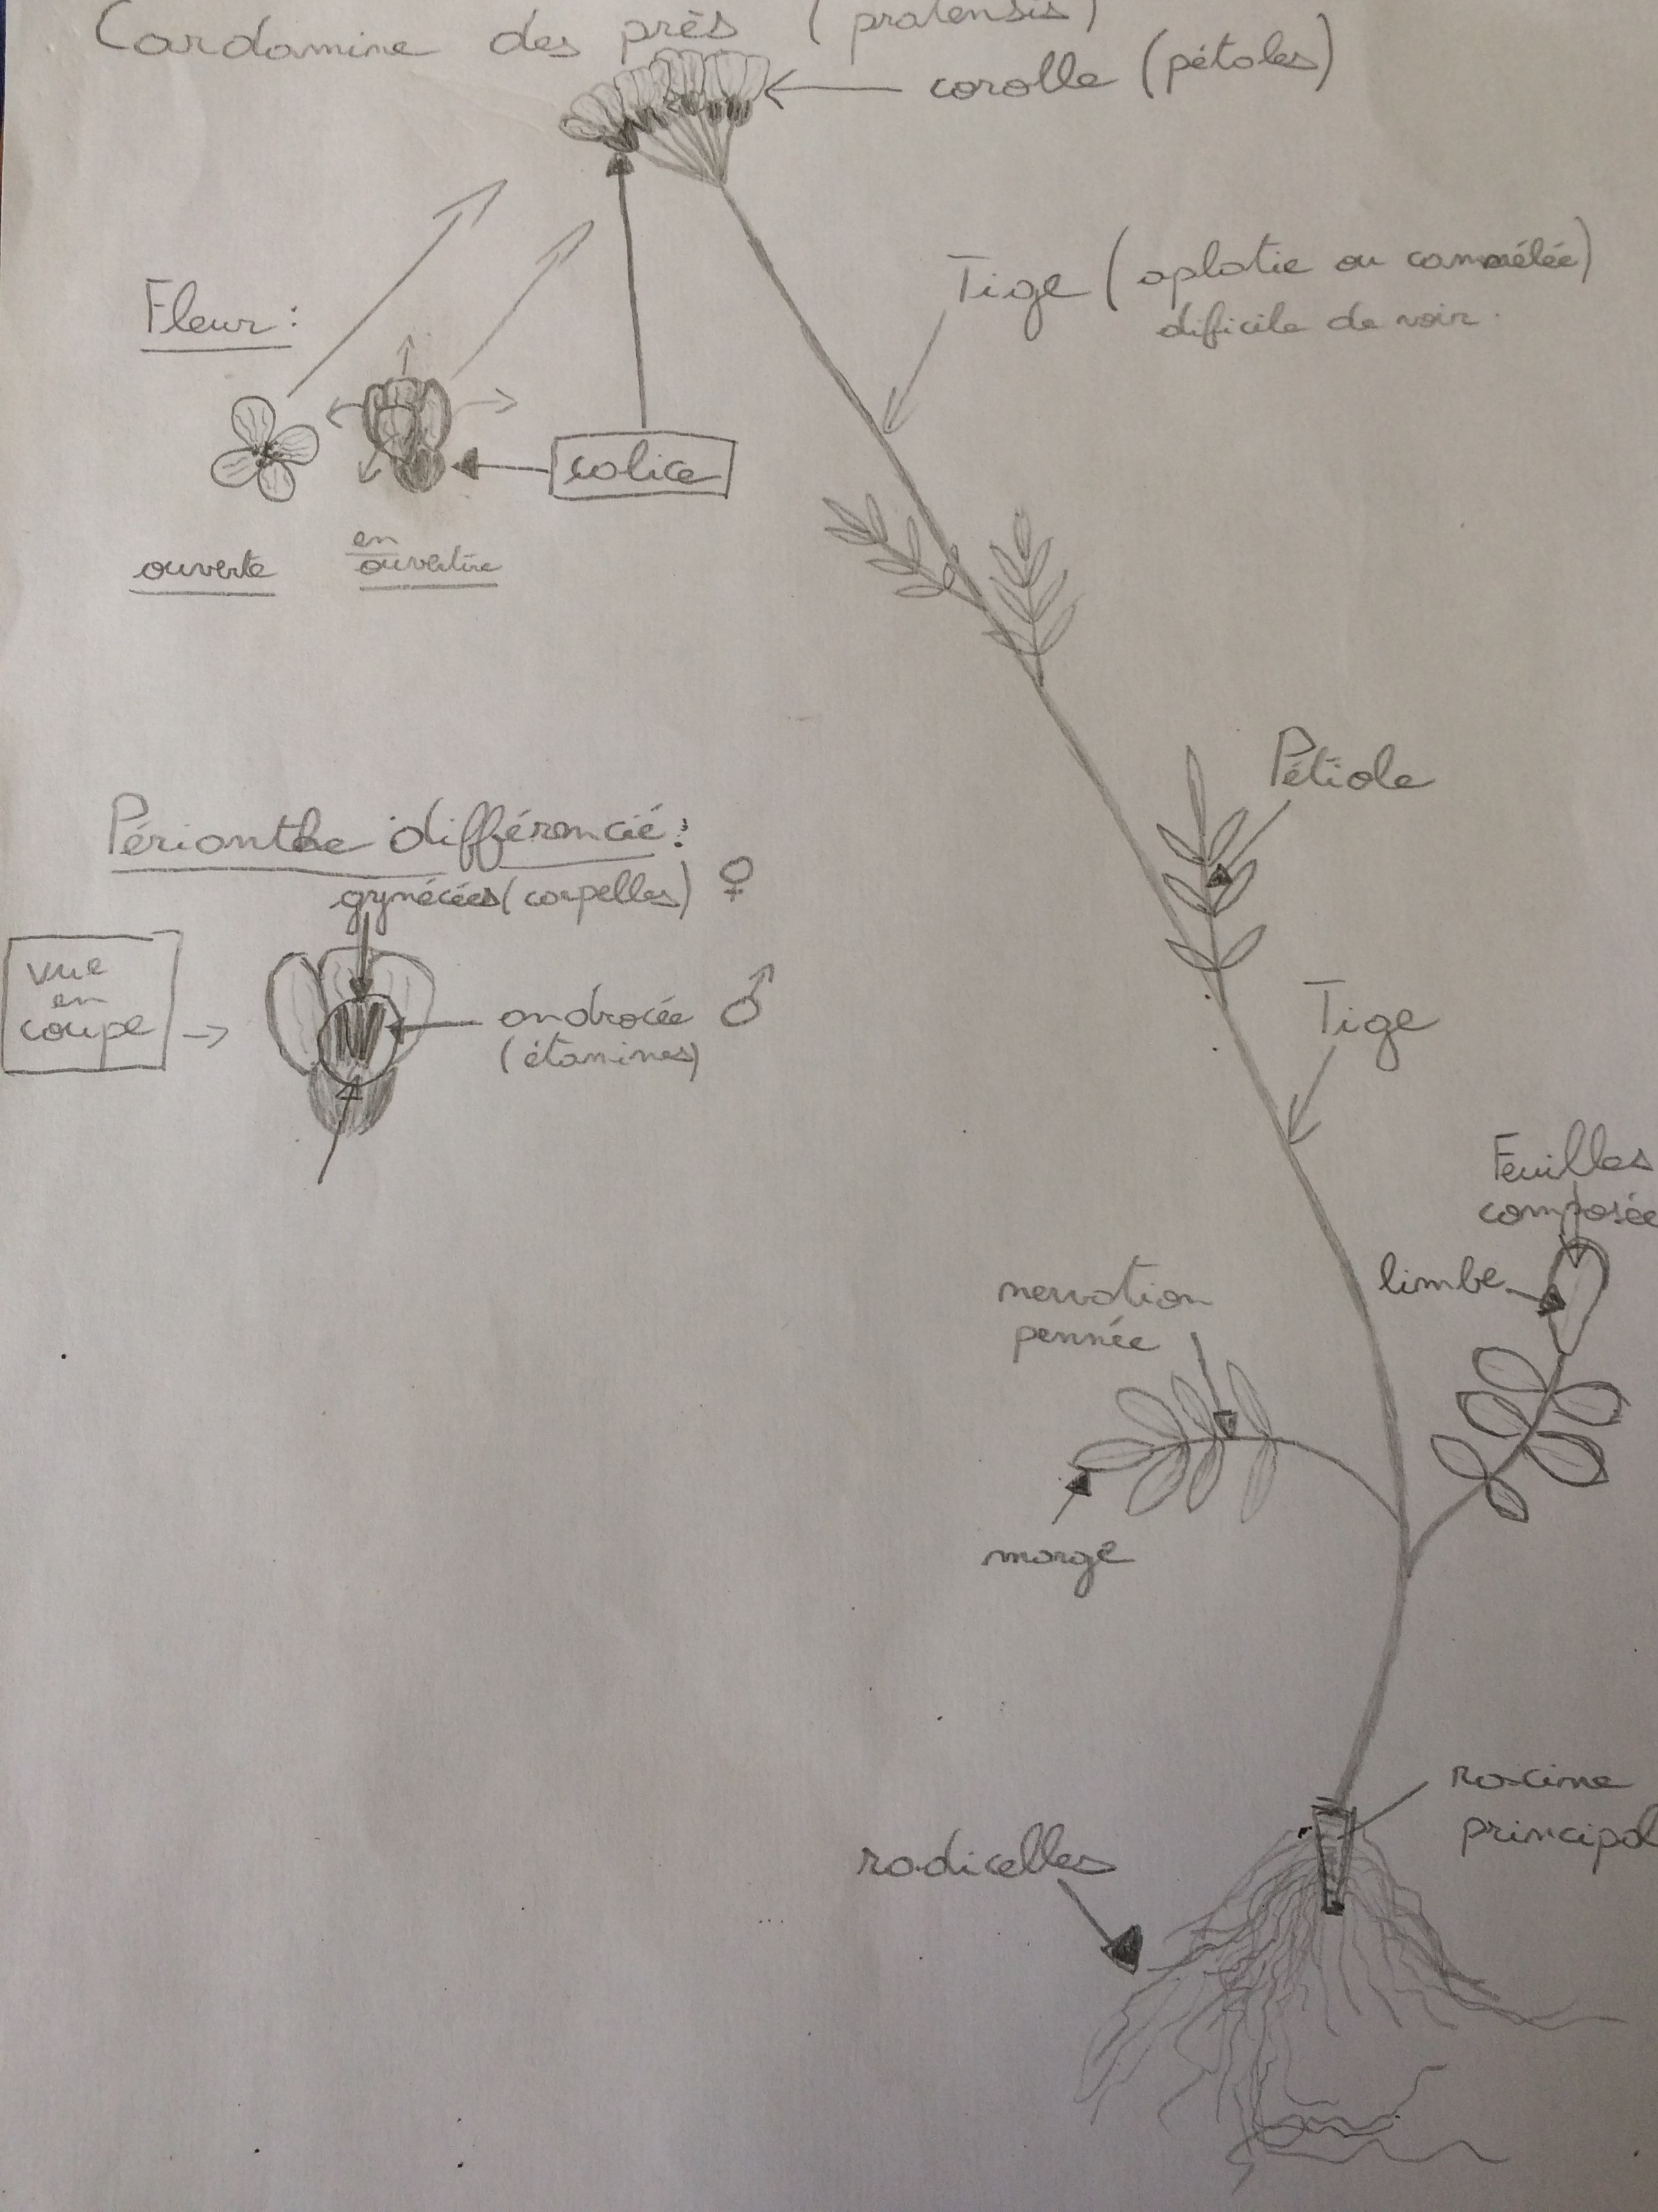 Cardamine des près (pratensis)
corolle (pétales)
Tige (aplatie ou cannelée)
dificile de voir.
Fleur :
calice
ouverte
en
ouverture
Pétiole
Périanthe différencié :
gynécées (carpelles) ♀
vue
en
coupe
androcée ♂
(étamines)
Tige
Feuilles
composée
limbe
nervation
pennée
marge
racine
principal
radicelles